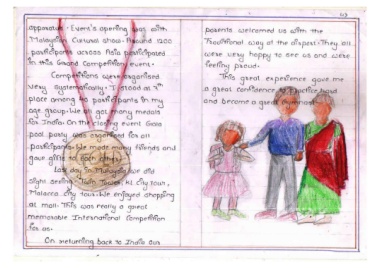 apparatus. Event's opening was with
Malaysian Cultural show. Around 1200
participants across Asia participated
in this Grand Competition event.
Competitions were organised
very systematically. I stood at 7th
place among 40 participants in my
age group. We all got many medals
for India. On the closing event Gala
pool party was organised for all
participants. We made many friends and
gave gifts to each other.
Last day in Malaysia we did
sight seeing, Twin Tower, KL city tour,
Malacca city tour. We enjoyed shopping
at mall. This was really a great
memorable International Competition
for us.
On returning back to India our
parents welcomed us with the
Traditional way at the airport. They all
were very happy to see us and were
feeling proud.
This great experience gave me
a great confidence to practice hard
and become a great gymnast.